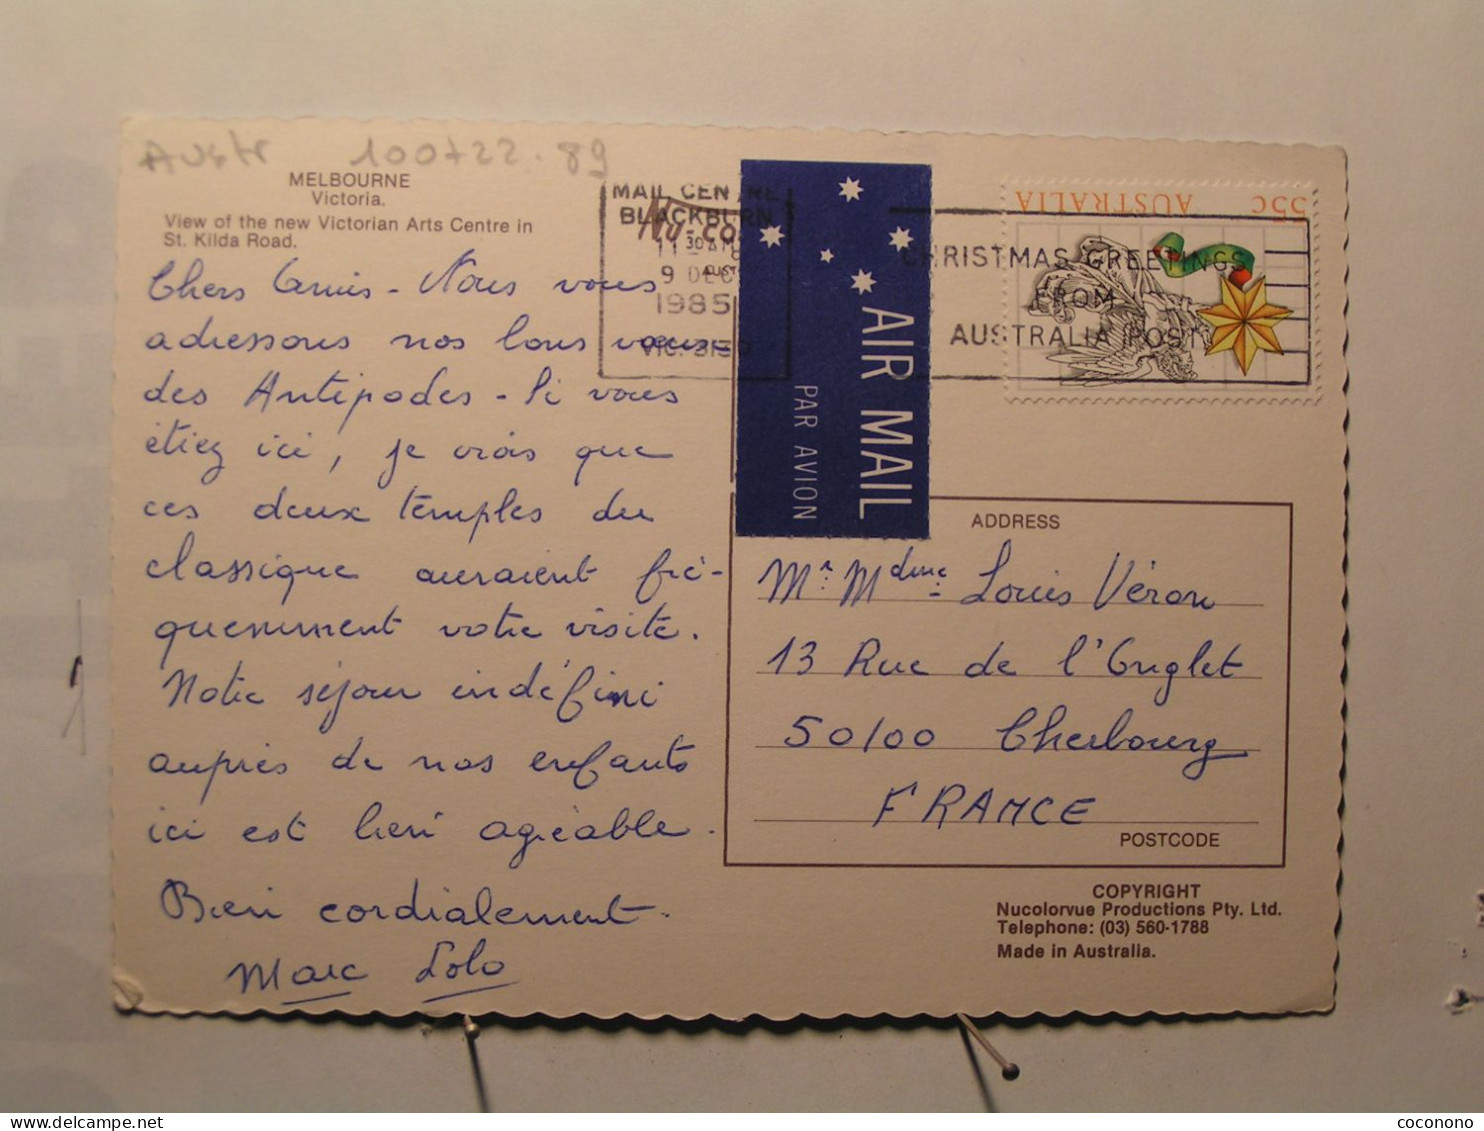 Austr 100722.89
MELBOURNE
Victoria.
View of the new Victorian Arts Centre in
St. Kilda Road.
Chers Amis - Nous vous
adressons nos bons vœux
des Antipodes - Si vous
étiez ici, je crois que
ces deux temples du
classique auraient fré-
quemment votre visite.
Notre séjour indéfini
auprès de nos enfants
ici est bien agréable.
Bien cordialement.
Marc Lolo
MAIL CENTRE
BLACKBURN
9 DEC
1985
VIC. 3130
AIR MAIL
PAR AVION
AUSTRALIA 55c
CHRISTMAS GREETINGS
FROM
AUSTRALIA POST
ADDRESS
Mr Mdme Louis Véron
13 Rue de l'Onglet
50100 Cherbourg
FRANCE
POSTCODE
COPYRIGHT
Nucolorvue Productions Pty. Ltd.
Telephone: (03) 560-1788
Made in Australia.
coconono